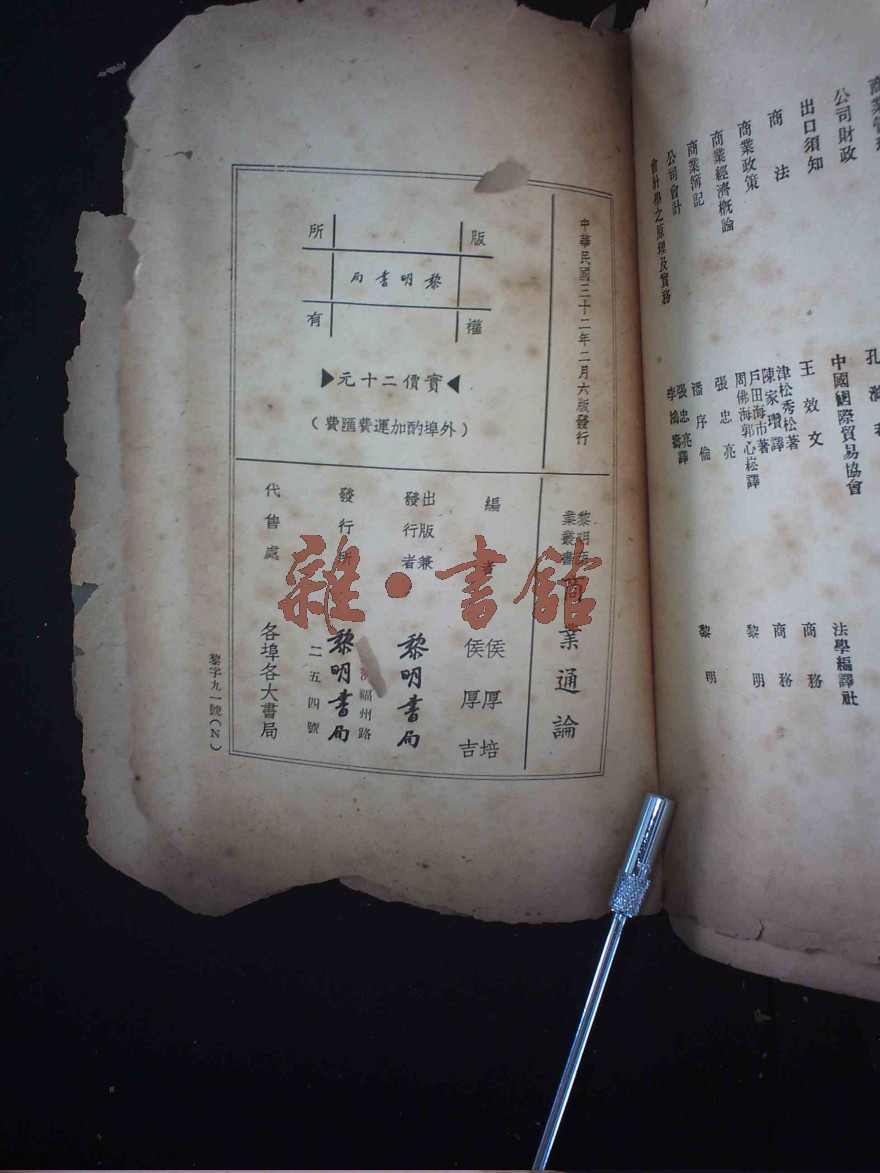 商法
出口須知
公司財政
商業政策
商業經濟概論
商業簿記
公司會計
會計學之原理及實務
中國國際貿易協會
王效文
津村秀松著
陳家瓚譯
戶田海市著
周佛海郭心崧譯
張忠亮
潘序倫
張忠亮譯
李鴻壽
法學編譯社
商務
商務
黎明
黎明
中華民國三十二年二月六版發行
版權所有
黎明書局
實價二十元
(外埠酌加運費匯費)
黎明商業叢書
商業通論
編者
侯厚培
侯厚吉
出版兼發行者
黎明書局
發行所
福州路
二五四號
黎明書局
代售處
各埠各大書局
黎字九一號(N)
雜·書館